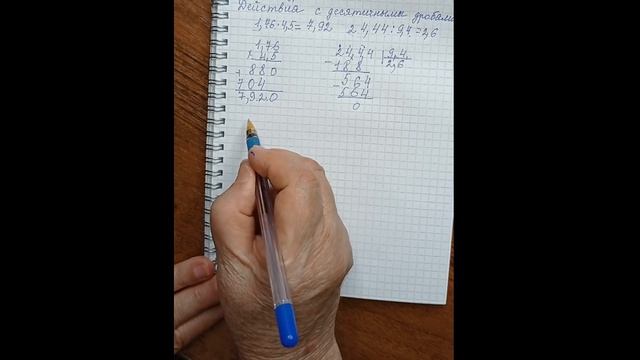 Действия с десятичными дробями
1,76 · 4,5 = 7,92 24,44 : 9,4 = 2,6
1,76
× 4,5
+ 880
704
7,920
24,44 | 9,4
- 188 2,6
564
- 564
0